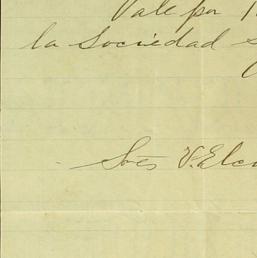 Vale por
la Sociedad
Sres V. Elc